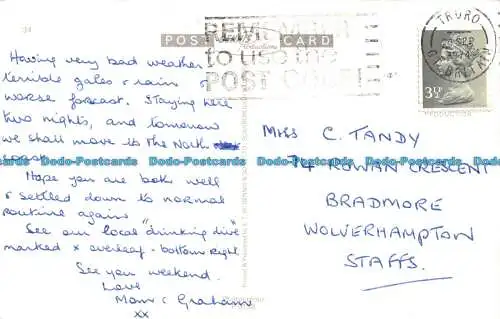 POST CARD
REMEMBER
to use the
POST CODE
TRURO
CORNWALL
3½
Having very bad weather
terrible gales & rain &
worse forecast. Staying here
two nights, and tomorrow
we shall move to the North
coast.
Hope you are both well
& settled down to normal
routine again.
See our local "drinking dive"
marked x overleaf - bottom right
See you weekend.
Love
Mom & Graham
xx
MISS C. TANDY
74 ROWAN CRESCENT
BRADMORE
WOLVERHAMPTON
STAFFS.
Dodo-Postcards Dodo-Postcards Dodo-Postcards Dodo-Postcards
Dodo-Postcards Dodo-Postcards Dodo-Postcards Dodo-Postcards